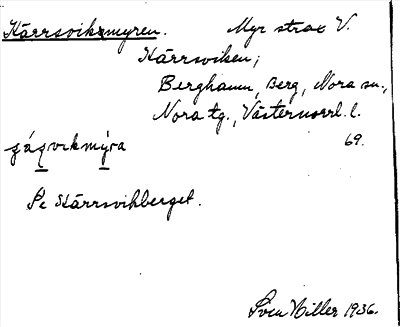 Kärrsviksmyren. Myr strax V.
Kärrsviken;
Berghamn, Berg, Nora sn.,
Nora tg., Västernorrl. l.
69.
Se Kärrsvikberget.
Sven Hiller 1936.